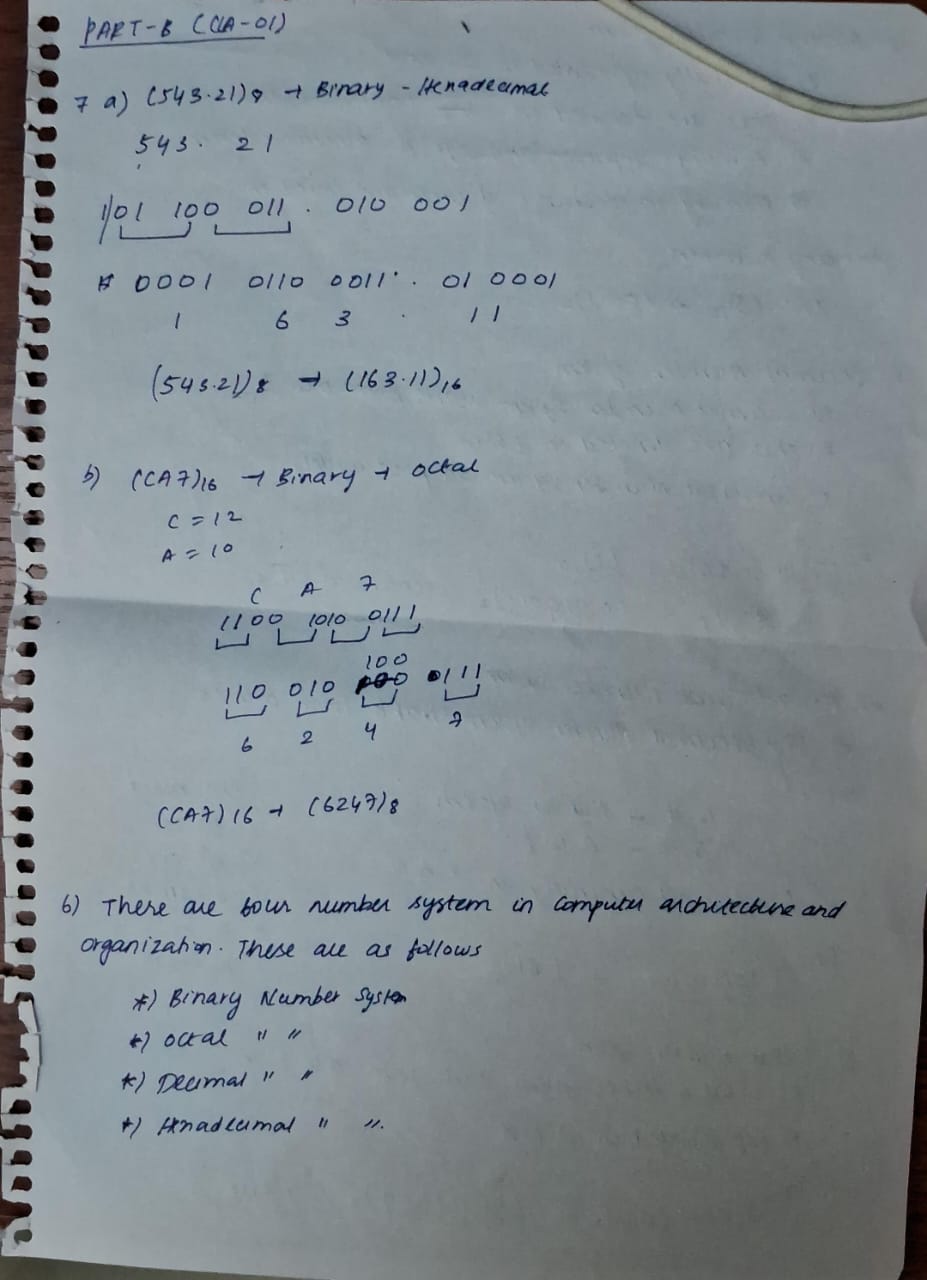 PART-B (CLA-01)
7 a) (543.21)8 → Binary - Hexadecimal
543. 21
101 100 011 . 010 001
0001 0110 0011 . 01 0001
1 6 3 . 11
(543.21)8 → (163.11)16
b) (CA7)16 → Binary → octal
C = 12
A = 10
C A 7
1100 1010 0111
100
110 010 0111
6 2 4 7
(CA7)16 → (6247)8
6) There are four number system in Computer architecture and
organization. These are as follows
*) Binary Number System
*) octal " "
*) Decimal " "
*) Hexadecimal " ".